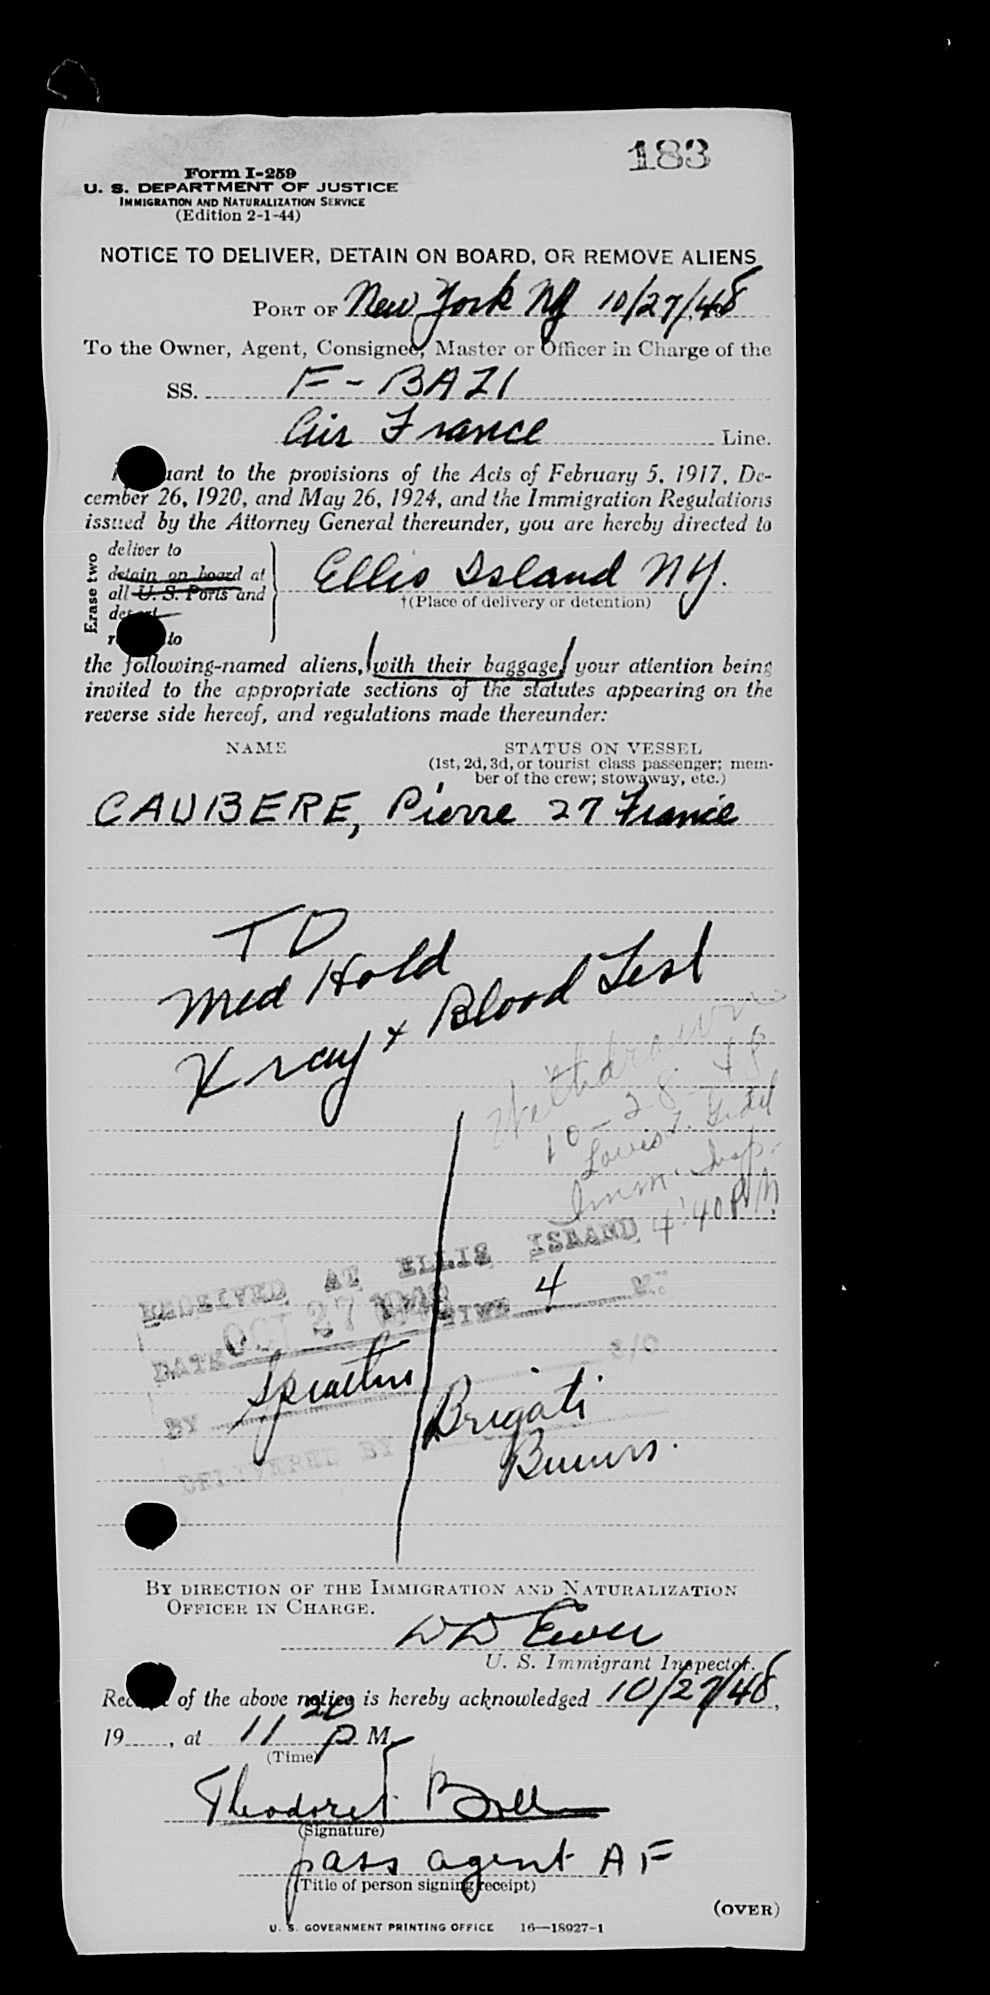 183
Form I-259
U. S. DEPARTMENT OF JUSTICE
IMMIGRATION AND NATURALIZATION SERVICE
(Edition 2-1-44)
NOTICE TO DELIVER, DETAIN ON BOARD, OR REMOVE ALIENS
PORT OF New York NY 10/27/48
To the Owner, Agent, Consignee, Master or Officer in Charge of the
SS. F-BAZI
Air France Line.
uant to the provisions of the Acts of February 5, 1917, De-
cember 26, 1920, and May 26, 1924, and the Immigration Regulations
issued by the Attorney General thereunder, you are hereby directed to
Erase two
deliver to
detain on board at
all U. S. Ports and
to
Ellis Island NY.
†(Place of delivery or detention)
the following-named aliens, (with their baggage) your attention being
invited to the appropriate sections of the statutes appearing on the
reverse side hereof, and regulations made thereunder:
NAME STATUS ON VESSEL
(1st, 2d, 3d, or tourist class passenger; mem-
ber of the crew; stowaway, etc.)
CAUBERE, Pierre 27 France
TD
Med Hold
X ray + Blood Test
Withdrawn
10-28-48
Louis
Imm. Insp.
4:40 PM
RECEIVED AT ELLIS ISLAND
DATE OCT 27 1948 TIME 4 M.
BY S/O
DELIVERED BY
Brigati
BY DIRECTION OF THE IMMIGRATION AND NATURALIZATION
OFFICER IN CHARGE.
U. S. Immigrant Inspector.
Receipt of the above notice is hereby acknowledged 10/27/48,
19 , at 11 20 P M.
(Time)
Theodore
(Signature)
pass agent AF
(Title of person signing receipt)
(OVER)
U. S. GOVERNMENT PRINTING OFFICE 16—18927-1